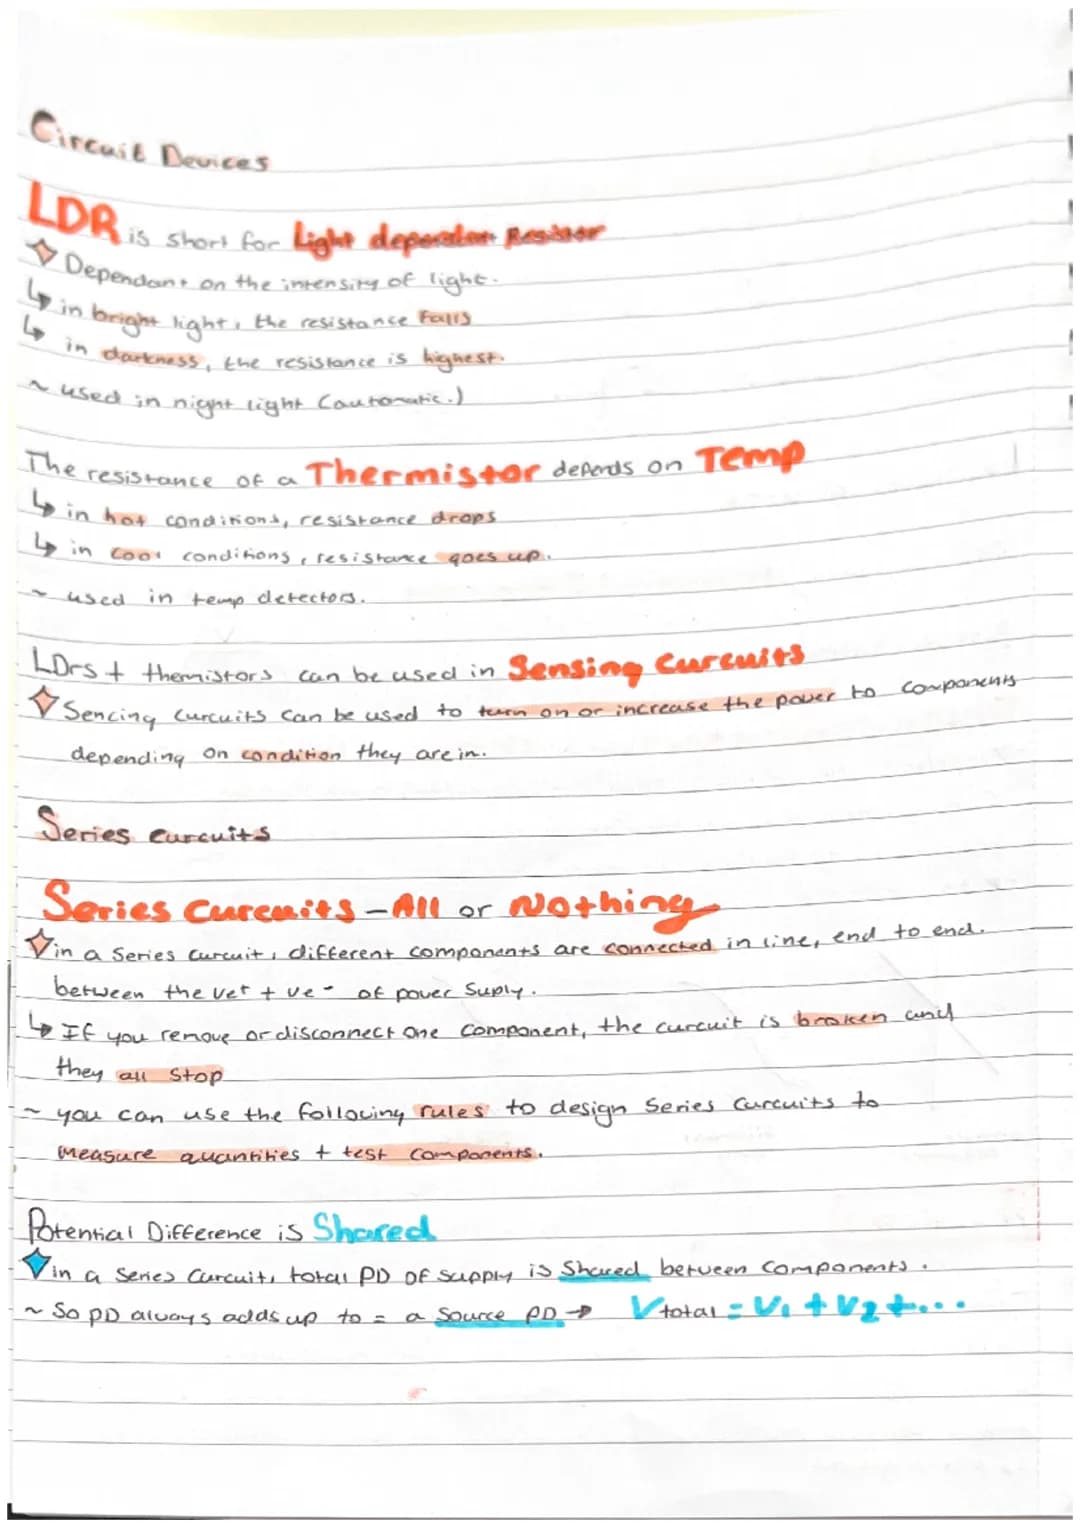 Circuit Devices
LDR is short for Light dependant Resistor
Dependant on the intensity of light.
↳ in bright light, the resistance falls
↳ in darkness, the resistance is highest.
~ used in night light (automatic.)
The resistance of a Thermistor depends on Temp
↳ in hot conditions, resistance drops
↳ in cool conditions, resistance goes up.
~ used in temp detectors.
LDrs + themistors can be used in Sensing Curcuits
Sencing curcuits can be used to turn on or increase the power to components
depending on condition they are in.
Series curcuits
Series Curcuits - All or Nothing
in a Series curcuit, different components are connected in line, end to end.
between the ve+ + ve- of power Suply.
↳ If you remove or disconnect one component, the curcuit is broken and
they all stop
~ you can use the following rules to design Series Curcuits to
measure quantities + test components.
Potential Difference is Shared
in a Series Curcuit, total PD of supply is Shared between components.
~ So PD always adds up to = a Source PD → V total = V1 + V2 + ...